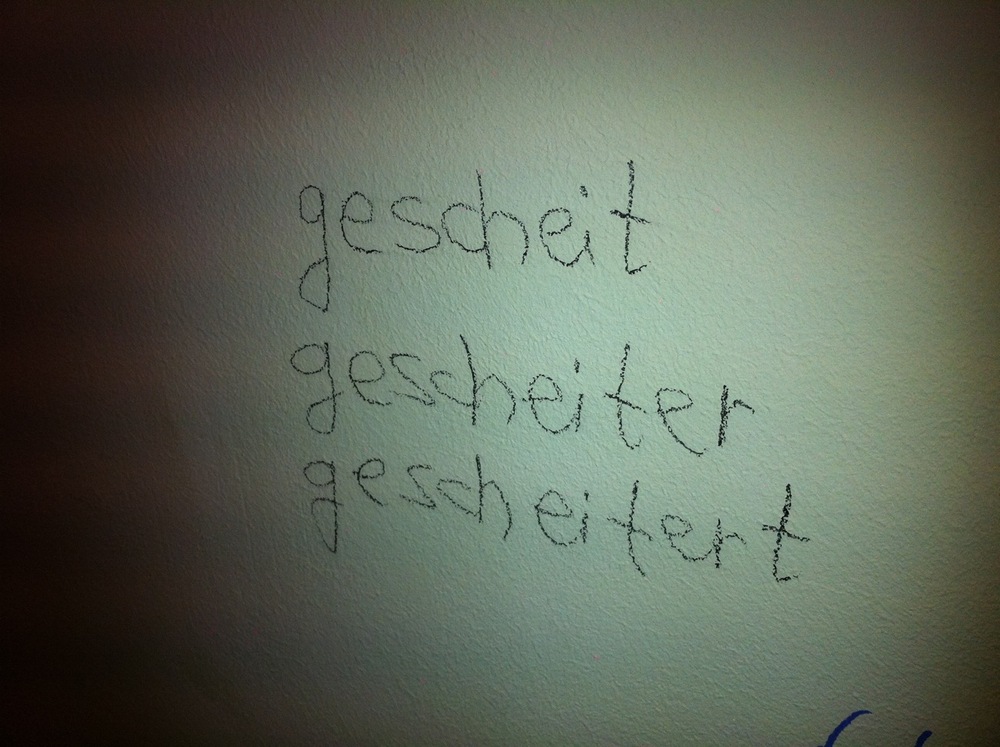 gescheit
gescheiter
gescheitert